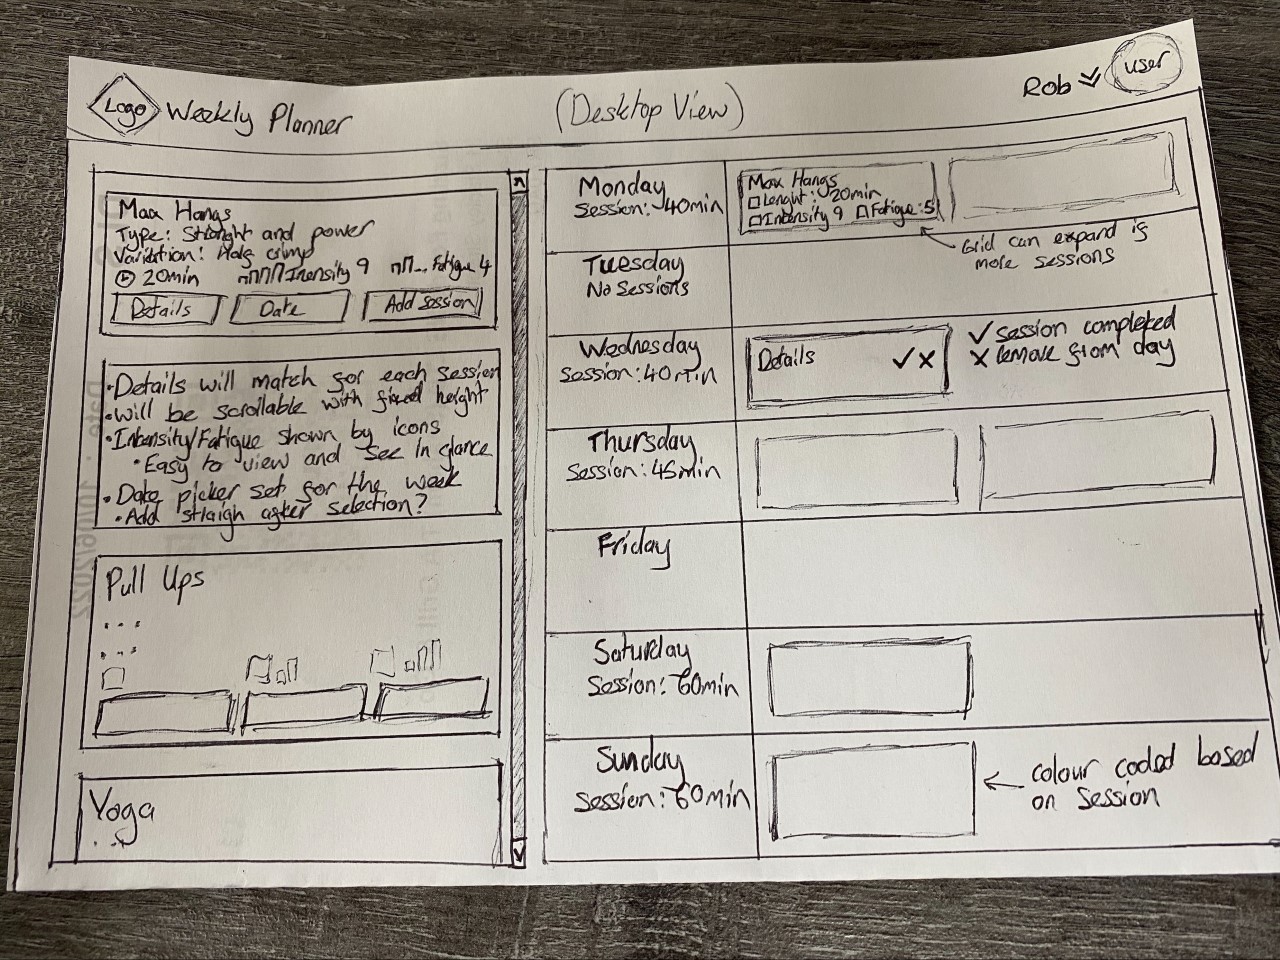 Logo
Weekly Planner
(Desktop View)
Rob
user
Max Hangs
Type: Strenght and power
Variation: Half crimp
20min Intensity 9 Fatigue 4
Details
Date
Add session
·Details will match for each session
·Will be scrollable with fixed height
·Intensity/Fatigue shown by icons
·Easy to view and see in glance
·Date picker set for the week
·Add straigh after selection?
Pull Ups
...
...
Yoga
...
Monday
Session: 40min
Max Hangs
Lenght: 20min
Intensity 9 Fatigue: 5
Grid can expand is
more sessions
Tuesday
No Sessions
Wednesday
Session: 40min
Details ✓ x
✓ session completed
x remove from day
Thursday
Session: 45min
Friday
Saturday
Session: 60min
Sunday
Session: 60min
colour coded based
on session